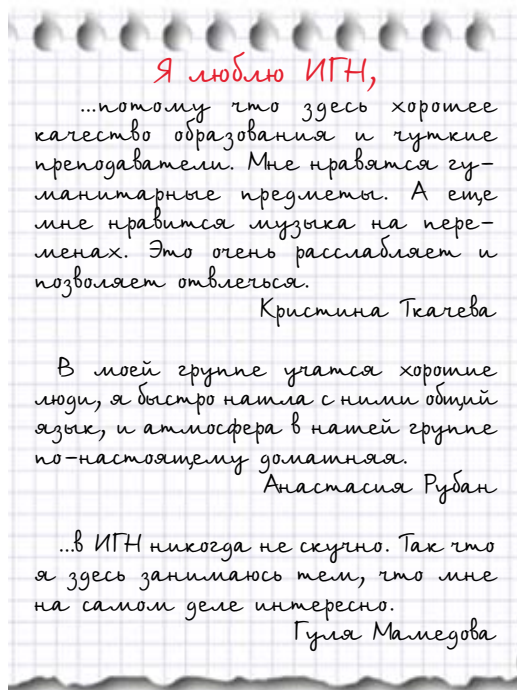 Я люблю ИГН,
...потому что здесь хорошее
качество образования и чуткие
преподаватели. Мне нравятся гу-
манитарные предметы. А еще
мне нравится музыка на пере-
менах. Это очень расслабляет и
позволяет отвлечься.
Кристина Ткачева
В моей группе учатся хорошие
люди, я быстро нашла с ними общий
язык, и атмосфера в нашей группе
по-настоящему домашняя.
Анастасия Рубан
...в ИГН никогда не скучно. Так что
я здесь занимаюсь тем, что мне
на самом деле интересно.
Гуля Мамедова